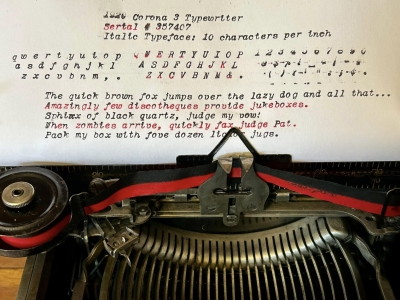 1926 Corona 3 Typewriter
Serial # 357407
Italic Typeface: 10 characters per inch
q w e r t y u i o p Q W E R T Y U I O P 1 2 3 4 5 6 7 8 9 0
a s d f g h j k l A S D F G H J K L
z x c v b n m , . Z X C V B N M & .
The quick brown fox jumps over the lazy dog and all that...
Amazingly few discotheques provide jukeboxes.
Sphinx of black quartz, judge my vow!
When zombies arrive, quickly fax judge Pat.
Pack my box with five dozen jugs.